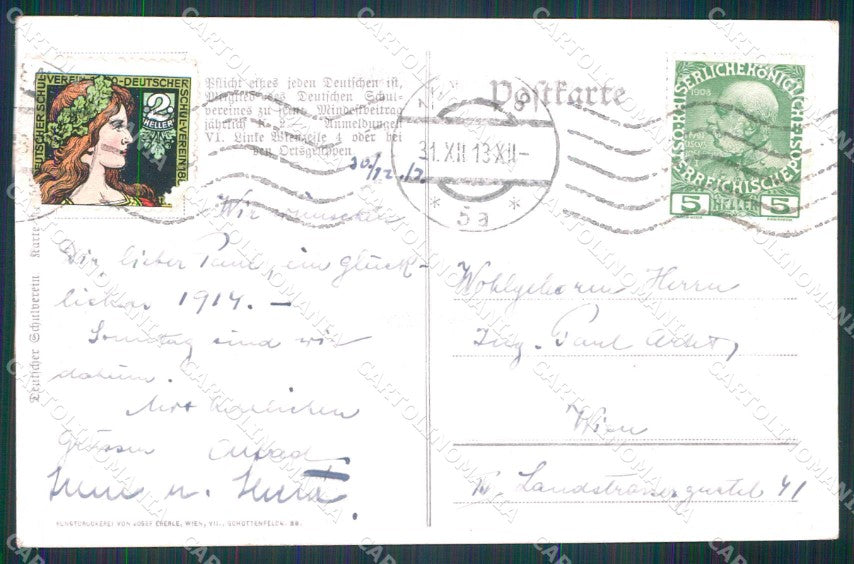 DEUTSCHER SCHULVEREIN 1880 - DEUTSCHER SCHULVEREIN 1880
2
HELLER
Pflicht eines jeden Deutschen ist,
Mitglied des Deutschen Schul-
vereines zu sein. Mindestbeitrag
jährlich K 2.— Anmeldungen
VI. Linke Wienzeile 4 oder bei
den Ortsgruppen
Postkarte
31.XII 13 XII-
* 5a *
KAISERLICHE KÖNIGLICHE
ÖSTERREICHISCHE
1908
5 HELLER 5
30/12.13
Wir wünschen
Dir, lieber Paul, ein glück-
lichen 1914. –
Sonntag sind wir
daheim.
Mit herzlichen
Grüssen
Wohlgeboren Herrn
Ing. Paul
Wien
Landstrassergürtel 41
Deutscher Schulverein Karte
KUNSTDRUCKEREI VON JOSEF EBERLE, WIEN, VII., SCHOTTENFELDG. 38.
CARTOLINOMANIA